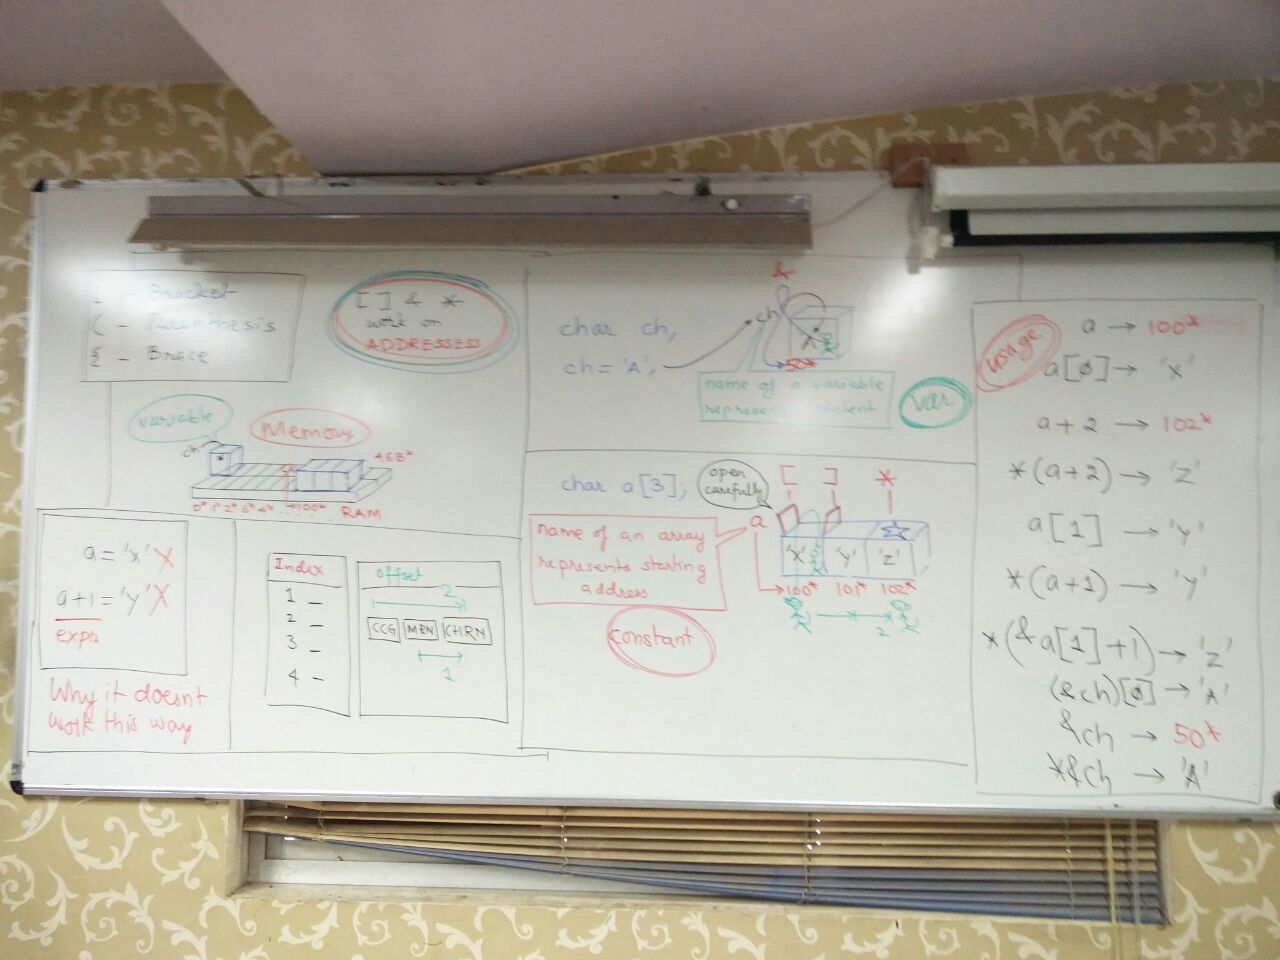 [ - Bracket
( - Paranthesis
{ - Brace
[ ] & *
work on
ADDRESSESS
variable
Memory
ch
a
468*
0* 1* 2* 3* 4* ..... 100*
RAM
a = 'x' X
a+1 = 'y' X
expn
Why it doesnt
work this way
Index
1 -
2 -
3 -
4 -
offset
2
CCG
MEN
CHRN
1
char ch;
ch = 'A';
&
ch
A
50*
name of a variable
represents content
var
char a[3];
open
carefully
[ ] *
a
name of an array
represents starting
address
'X' 'Y' 'Z'
100* 101* 102*
2
constant
usage
a → 100*
a[0] → 'x'
a+2 → 102*
*(a+2) → 'Z'
a[1] → 'y'
*(a+1) → 'y'
*(&a[1]+1) → 'Z'
(&ch)[0] → 'A'
&ch → 50*
*&ch → 'A'